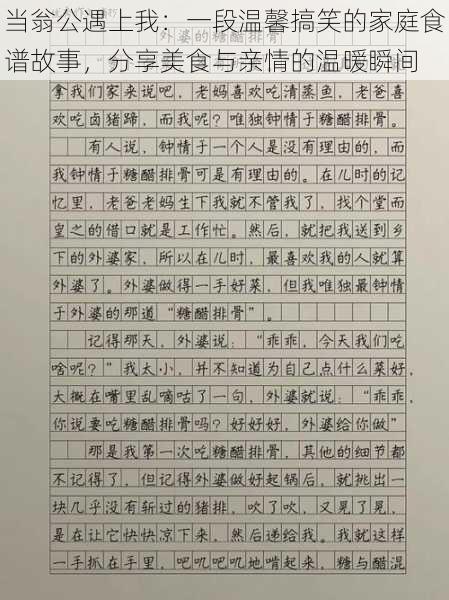 当翁公遇上我：一段温馨搞笑的家庭食
谱故事，分享美食与亲情的温暖瞬间
拿我们家来说吧，老妈喜欢吃清蒸鱼，老爸喜
欢吃卤猪蹄，而我呢？唯独钟情于糖醋排骨。
有人说，钟情于一个人是没有理由的，而
我钟情于糖醋排骨可是有理由的。在儿时的记
忆里，老爸老妈生下我就不管我了，找个堂而
皇之的借口就是工作忙。然后，就把我送到乡
下的外婆家，所以在儿时，最喜欢我的人就算
外婆了。外婆做得一手好菜，但我唯独最钟情
于外婆的那道“糖醋排骨”。
记得那天，外婆说：“乖乖，今天我们吃
啥呢？”我太小，并不知道为自己点什么菜好，
大概在嘴里乱嘀咕了一句，外婆就说：“乖乖，
你说要吃糖醋排骨吗？好好好，外婆给你做”
那是我第一次吃糖醋排骨，其他的细节都
不记得了，但记得外婆做好起锅后，就挑出一
块几乎没有斩过的猪排，吹了吹，又晃了晃，
是在让它快快凉下来，然后递给我。我就这样
一手抓在手里，吧叽吧叽地啃起来，糖与醋混